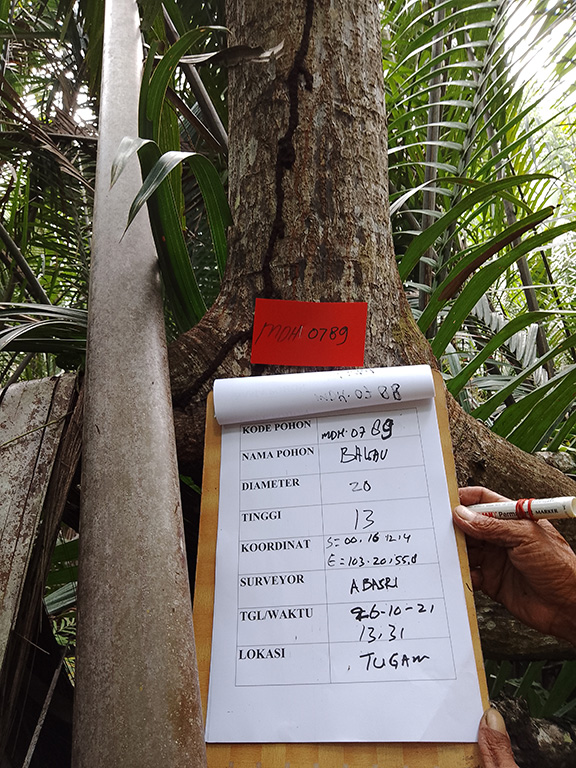 MDH 0789
MDH.07 88
KODE POHON MDH.07 89
NAMA POHON BAKAU
DIAMETER 20
TINGGI 13
KOORDINAT S=00.16 12,4
E=103.20,55,8
SURVEYOR ABASRI
TGL/WAKTU 26-10-21
13,31
LOKASI TUGAM
Permanent MARKER